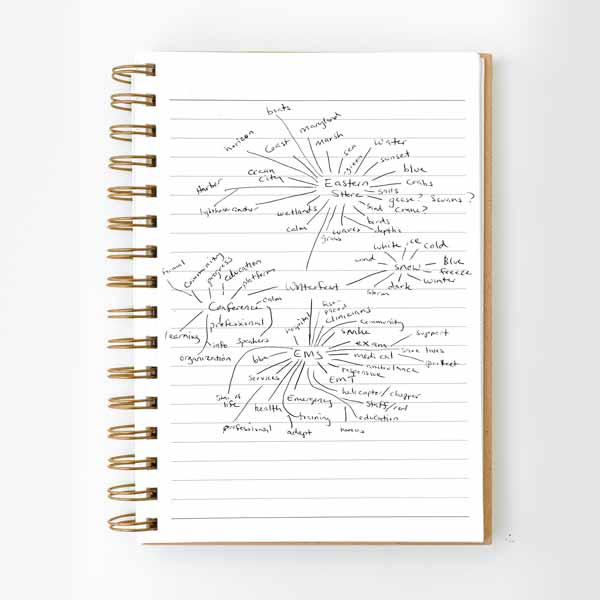 boats
maryland
horizon
Coast
marsh
sea
green
Winter
sunset
ocean
city
blue
harbor
Eastern
Shore
crabs
sails
geese? Swans?
lighthouse
wetlands
Sand
Crane?
birds
calm
waves
depths
grass
white
ice
cold
wind
snow
Blue
freeze
winter
dark
storm
formal
Community
progress
education
platform
Winterfest
Conference
calm
professional
learning
info
speakers
organization
hospital
first-
clinicians
community
snake
support
exam
save lives
bba
EMS
medical
protect
ambulance
responsive
services
EMT
Star of
life
helicopter/chopper
Emergency
staff/rod
health
training
education
professional
adapt